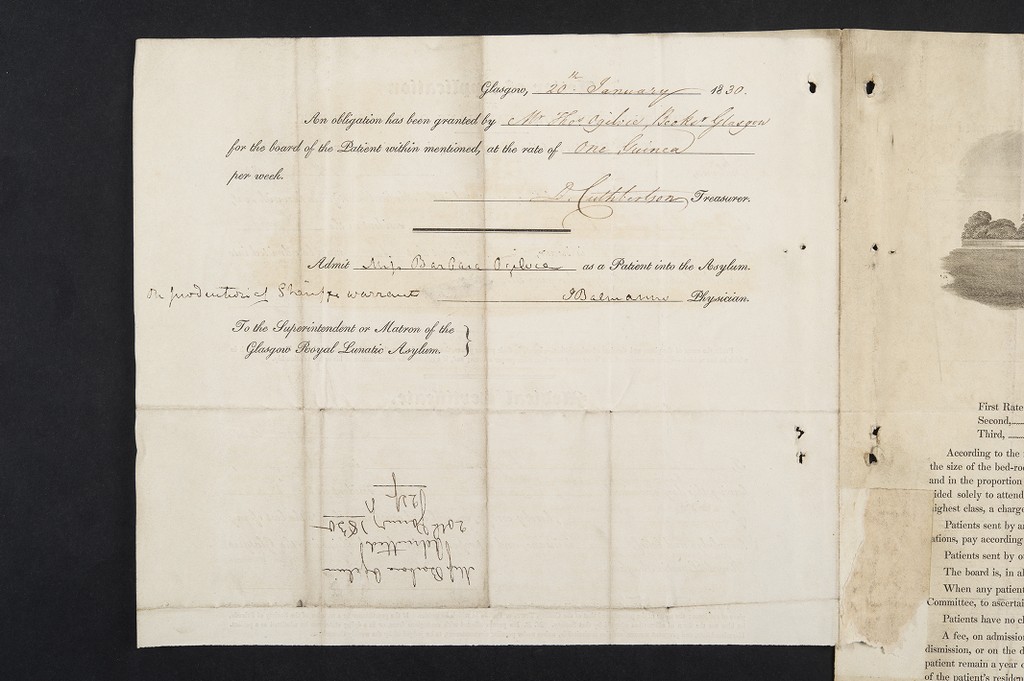 Glasgow, 20th January 1830.
An obligation has been granted by Mr. Thos Ogilvie, Bookr Glasgow
for the board of the Patient within mentioned, at the rate of One Guinea
per week.
D. Cuthbertson Treasurer.
Admit Miss Barbara Ogilvie as a Patient into the Asylum.
on production of Sheriffs warrant J Balmanno Physician.
To the Superintendent or Matron of the
Glasgow Royal Lunatic Asylum.
Miss Barbara Ogilvie
Admitted
20th January 1830
First Rate
Second,
Third,
According to the
the size of the bed-roo
and in the proportion
ided solely to attend
ighest class, a charge
Patients sent by
ations, pay according
Patients sent by
The board is, in al
When any patient
Committee, to ascertai
Patients have no
A fee, on admission
dismission, or on the d
patient remain a year
of the patient's residen